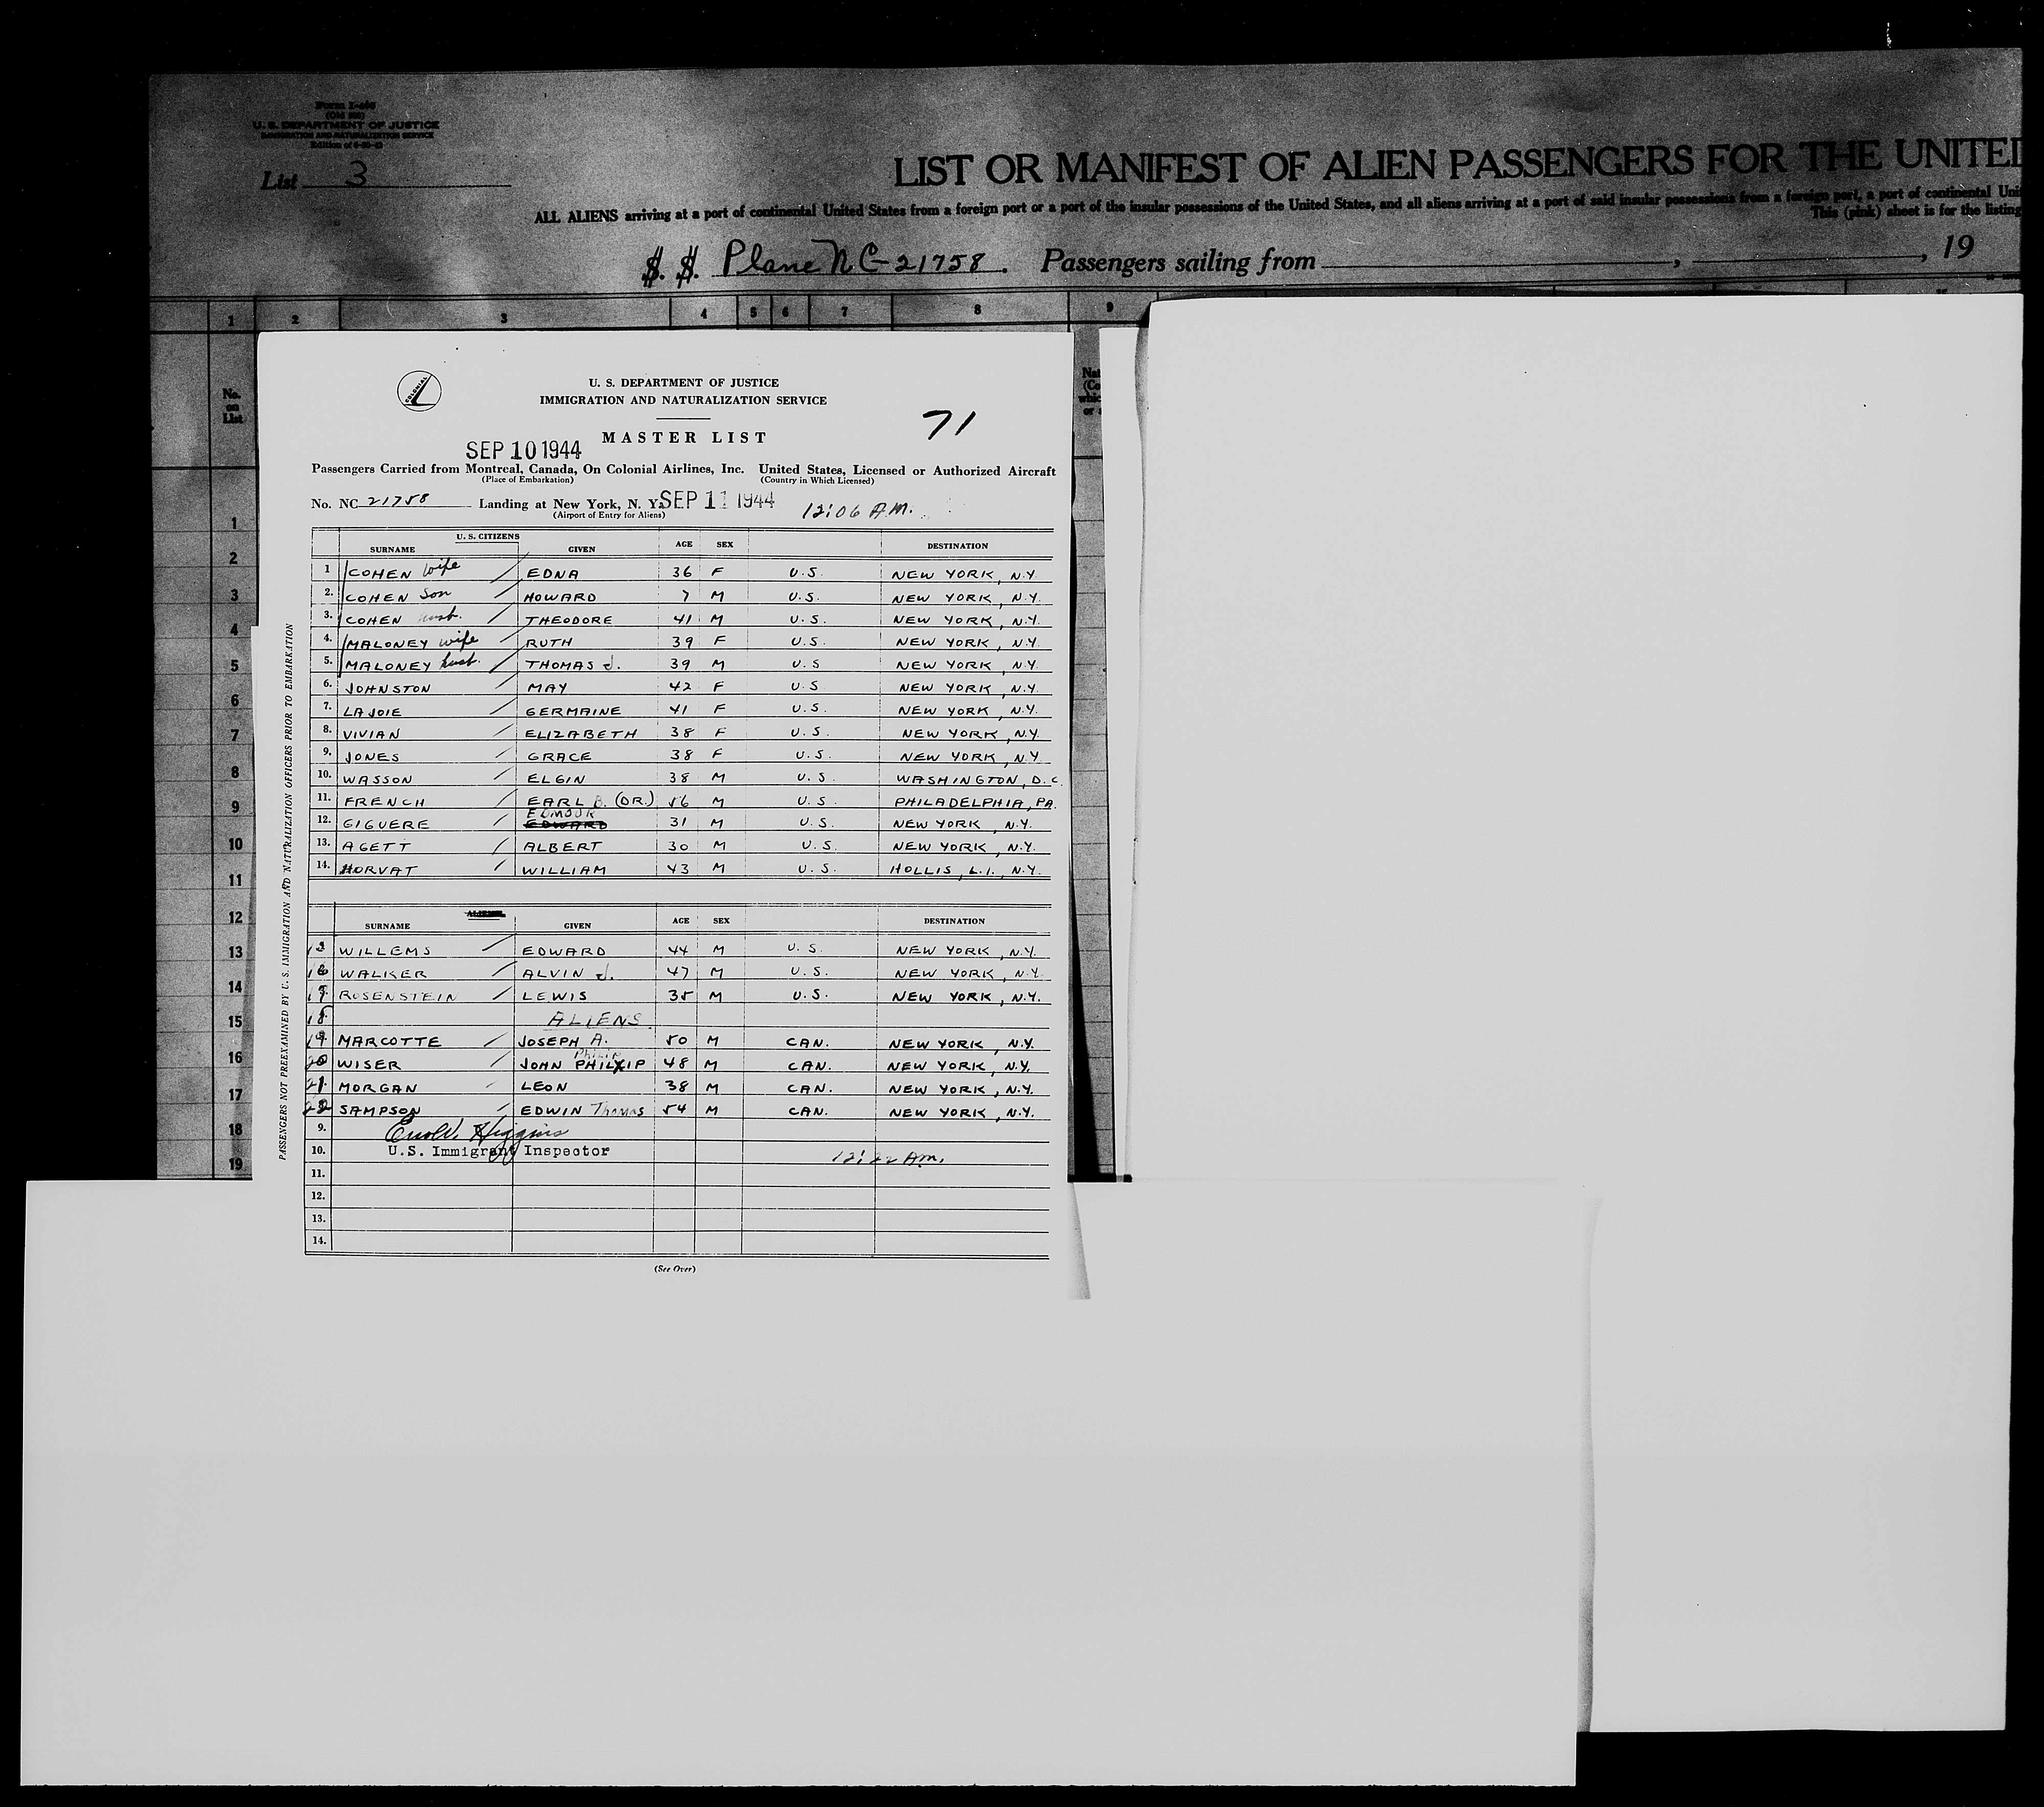 Form I-466
(Old 500)
U. S. DEPARTMENT OF JUSTICE
IMMIGRATION AND NATURALIZATION SERVICE
List 3
LIST OR MANIFEST OF ALIEN PASSENGERS FOR THE UNITED
ALL ALIENS arriving at a port of continental United States from a foreign port or a port of the insular possessions of the United States, and all aliens arriving at a port of said insular possessions from a foreign port, a port of continental Uni
This (pink) sheet is for the listing
S. S. Plane NC-21758. Passengers sailing from , , 19
1 2 3 4 5 6 7 8 9
No. on List
COLONIAL
U. S. DEPARTMENT OF JUSTICE
IMMIGRATION AND NATURALIZATION SERVICE
71
MASTER LIST
SEP 10 1944
Passengers Carried from Montreal, Canada, On Colonial Airlines, Inc. United States, Licensed or Authorized Aircraft
(Place of Embarkation) (Country in Which Licensed)
No. NC 21758 Landing at New York, N. Y. SEP 11 1944 12:06 A.M.
(Airport of Entry for Aliens)
U. S. CITIZENS
SURNAME GIVEN AGE SEX DESTINATION
1 COHEN wife EDNA 36 F U.S. NEW YORK, N.Y.
2. COHEN Son HOWARD 7 M U.S. NEW YORK, N.Y.
3. COHEN husb. THEODORE 41 M U.S. NEW YORK, N.Y.
4. MALONEY wife RUTH 39 F U.S. NEW YORK, N.Y.
5. MALONEY husb. THOMAS J. 39 M U.S NEW YORK, N.Y.
6. JOHNSTON MAY 42 F U.S NEW YORK, N.Y.
7. LAJOIE GERMAINE 41 F U.S. NEW YORK, N.Y.
8. VIVIAN ELIZABETH 38 F U.S. NEW YORK, N.Y.
9. JONES GRACE 38 F U.S. NEW YORK, N.Y.
10. WASSON ELGIN 38 M U.S. WASHINGTON, D.C.
11. FRENCH EARL B. (DR.) 56 M U.S. PHILADELPHIA, PA.
12. GIGUERE EDMOUR EDWARD 31 M U.S. NEW YORK, N.Y.
13. AGETT ALBERT 30 M U.S. NEW YORK, N.Y.
14. HORVAT WILLIAM 43 M U.S. HOLLIS, L.I., N.Y.
SURNAME GIVEN AGE SEX DESTINATION
15 WILLEMS EDWARD 44 M U.S. NEW YORK, N.Y.
16 WALKER ALVIN J. 47 M U.S. NEW YORK, N.Y.
17 ROSENSTEIN LEWIS 35 M U.S. NEW YORK, N.Y.
18 ALIENS
19 MARCOTTE JOSEPH A. 50 M CAN. NEW YORK, N.Y.
20 WISER JOHN PHILIP Philip 48 M CAN. NEW YORK, N.Y.
21 MORGAN LEON 38 M CAN. NEW YORK, N.Y.
22 SAMPSON EDWIN Thomas 54 M CAN. NEW YORK, N.Y.
9. Higgins
10. U.S. Immigrant Inspector 12:22 A.M.
11.
12.
13.
14.
(See Over)
PASSENGERS NOT PREEXAMINED BY U. S. IMMIGRATION AND NATURALIZATION OFFICERS PRIOR TO EMBARKATION
1
2
3
4
5
6
7
8
9
10
11
12
13
14
15
16
17
18
19